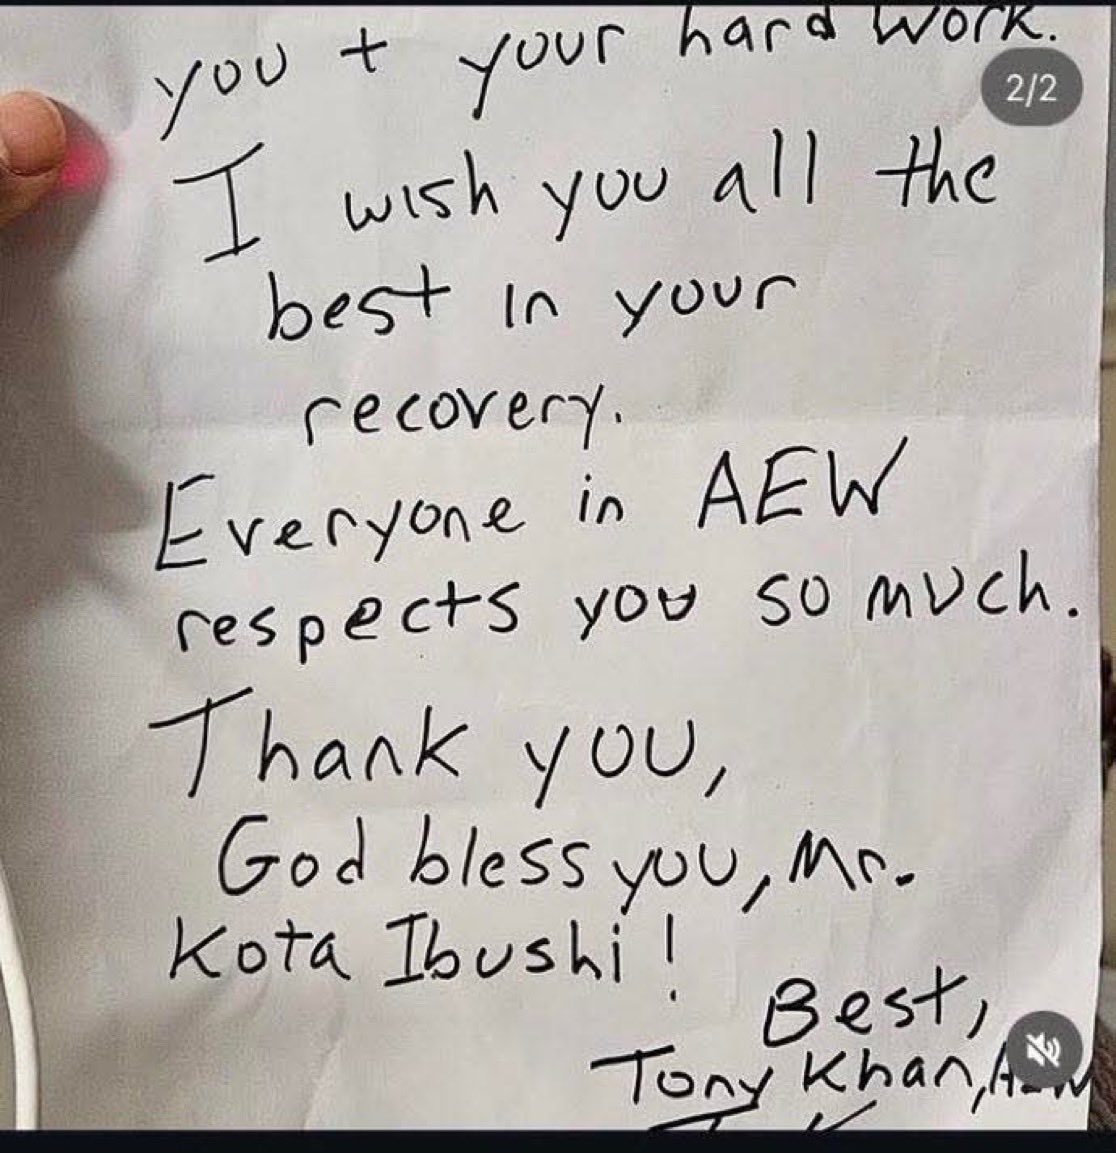 you + your hard work.
2/2
I wish you all the
best in your
recovery.
Everyone in AEW
respects you so much.
Thank you,
God bless you, Mr.
Kota Ibushi!
Best,
Tony Khan, AEW